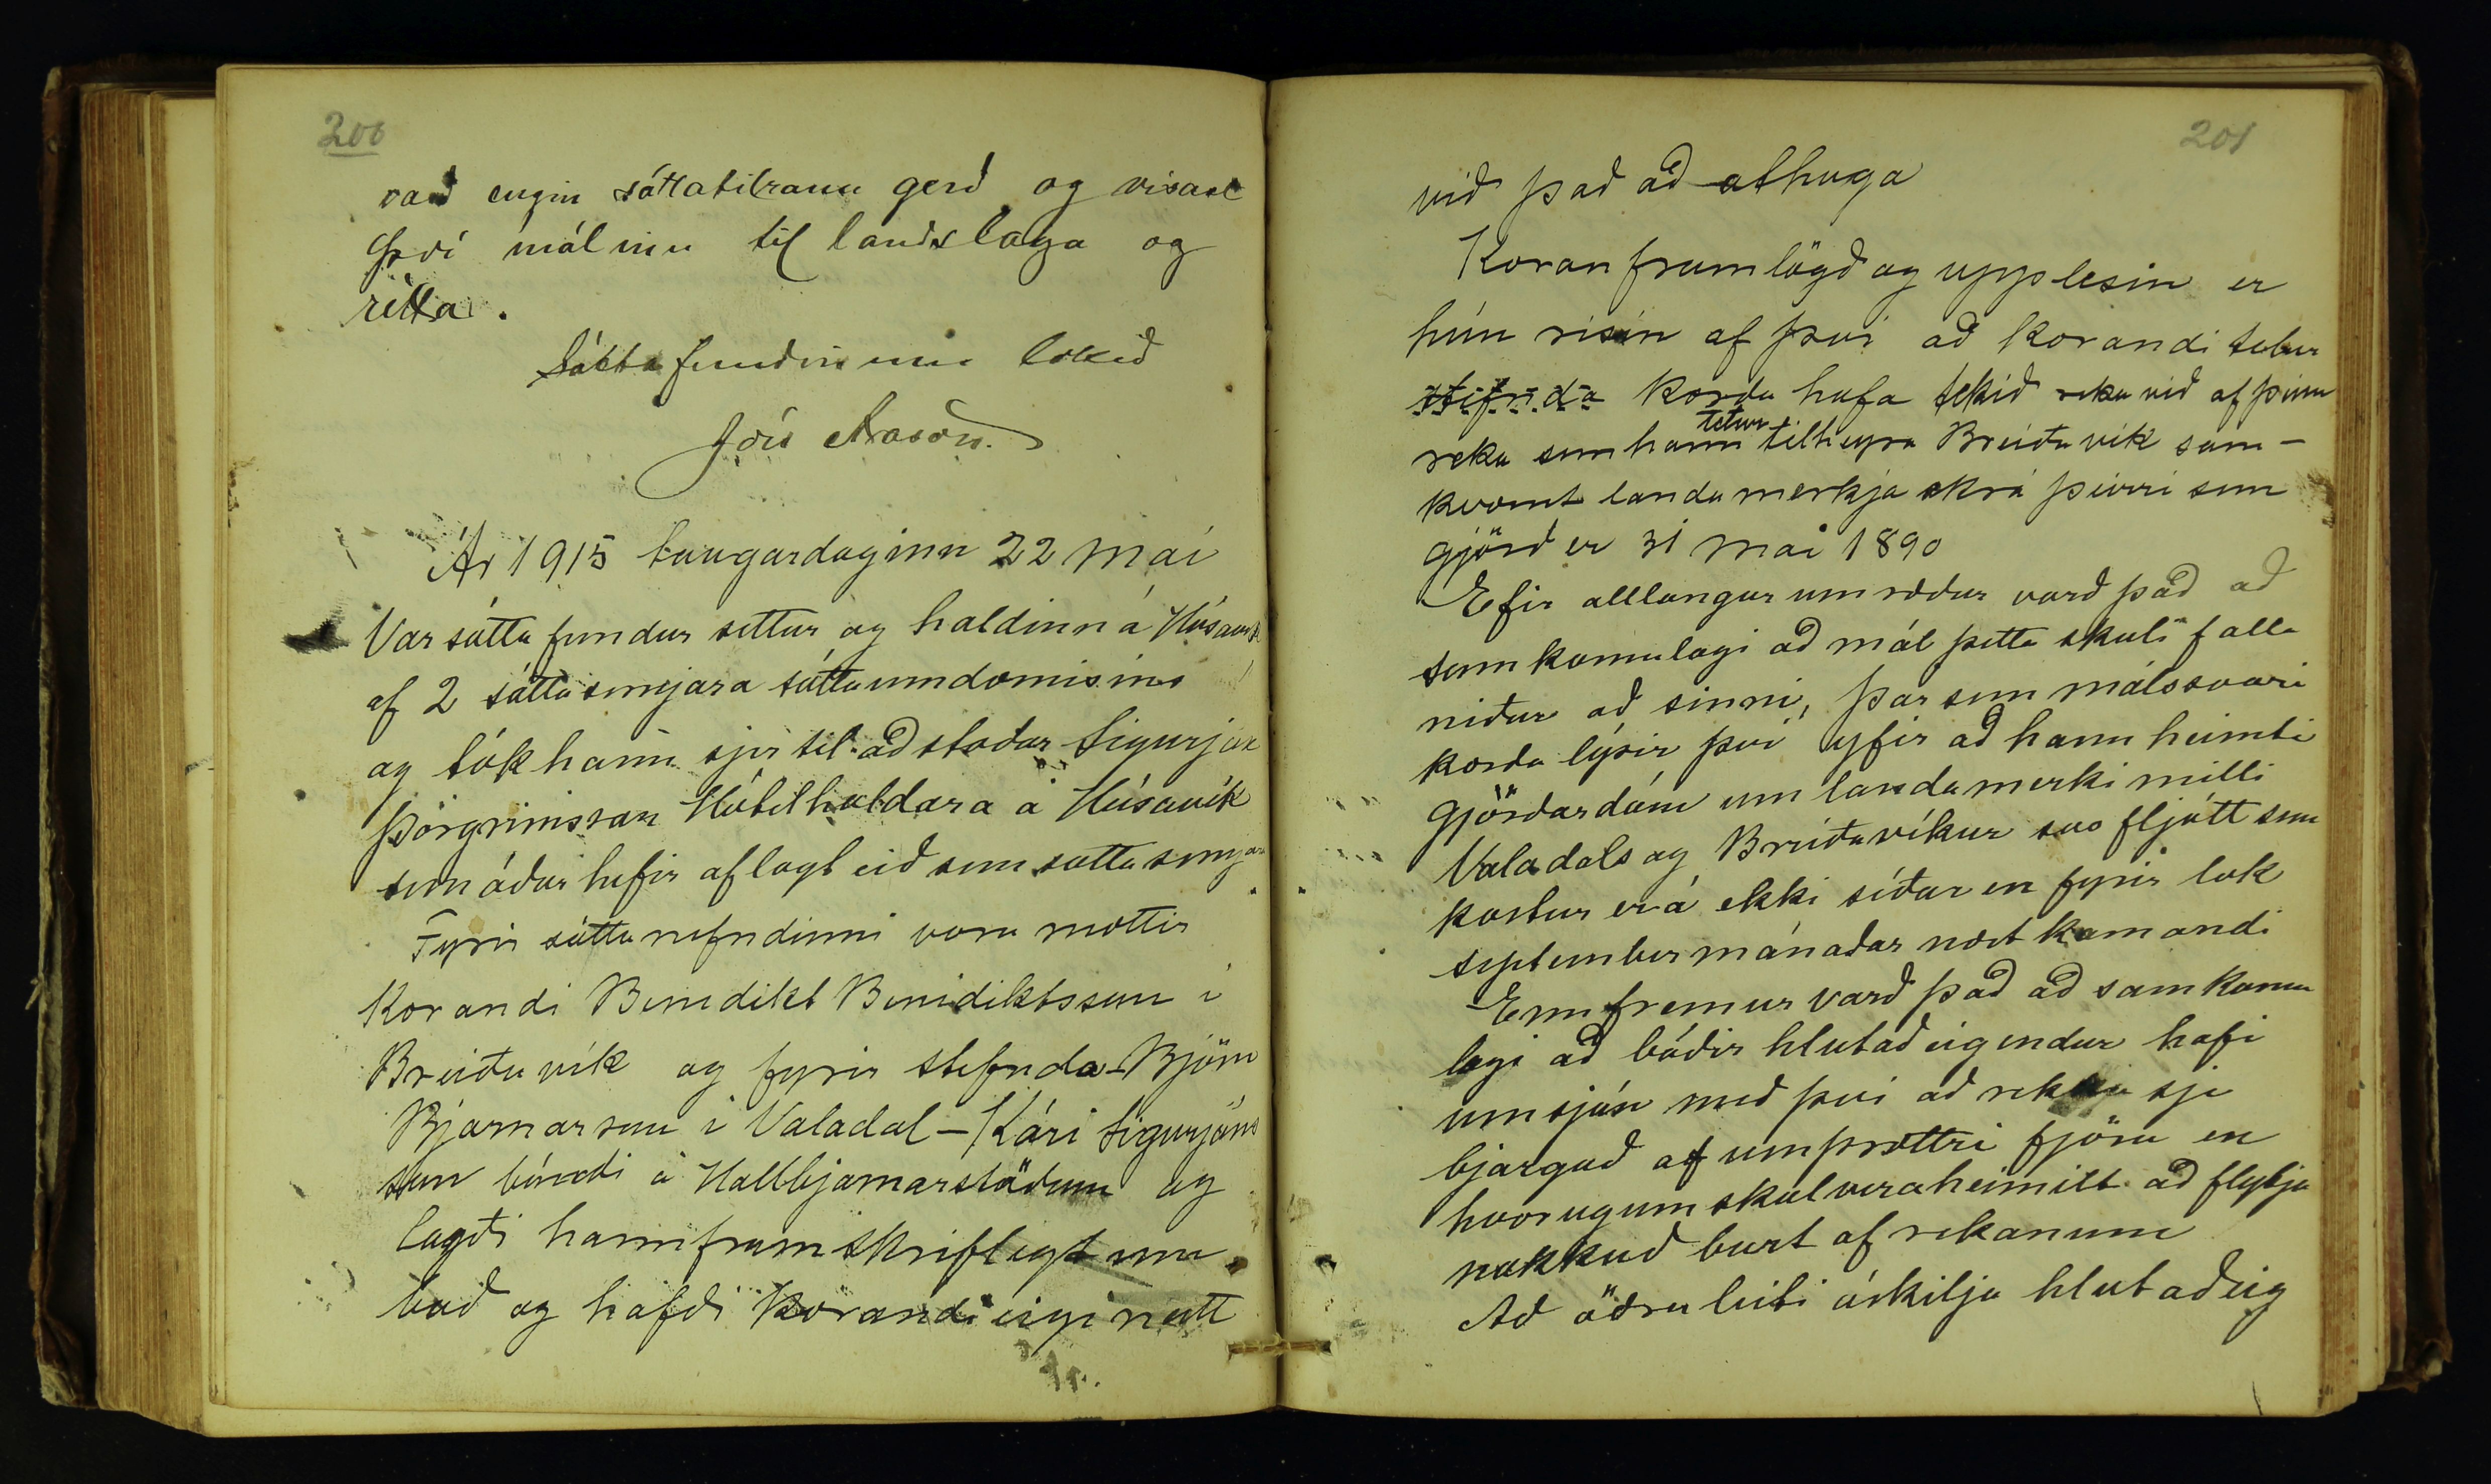 200
varð engin sáttatilraun gerð og vísast
því málinu til landslaga og
rétta.
Sáttafundinum lokið
Jón Arason.
Ár 1915 laugardaginn 22 maí
Var sátta fundur settur og haldinn á Húsavík
af 2 sáttasemjara sáttaumdæmisins
og tók hann sjer til aðstoðar Sigurjón
Þorgrímsson Hótelhaldara á Húsavík
sem áður hefir aflagt eið sem sáttasemjari
Fyrir sáttanefndinni voru mættir
Kærandi Benedikt Benidiktsson í
Breiðuvík og fyrir stefnda - Björn
Bjarnarson í Valadal - Kári Sigurjóns
son bóndi á Hallbjarnarstöðum og
lagði hann fram skriflegt um
boð og hafði kærandi eigi neitt
201
við það að athuga
Kæran framlögð og upplesin er
hún risin af því að kærandi telur
stefnda kærða hafa tekið reka við af þeim
reka sem hann telur tilheyra Breiðuvík sam-
kvæmt landamerkja skrá þeirri sem
gjörð er 31 maí 1890
Efir alllangar umræður varð það að
samkomulagi að mál þetta skuli falla
niður að sinni, þar sem málssvari
kærða lýsir því yfir að hann heimti
gjörðardóm um landamerki milli
Valadals og Breiðuvíkur svo fljótt sem
kostur er á ekki síðar en fyrir lok
septembermánaðar næst komandi
Ennfremur varð það að samkomu
lagi að báðir hlutaðeigendur hafi
umsjón með því að reka sje
bjargað af umþrættri fjöru en
hvorugum skal vera heimilt að flytja
nokkuð burt af rekanum
Að öðru leiti áskilja hlutaðeig